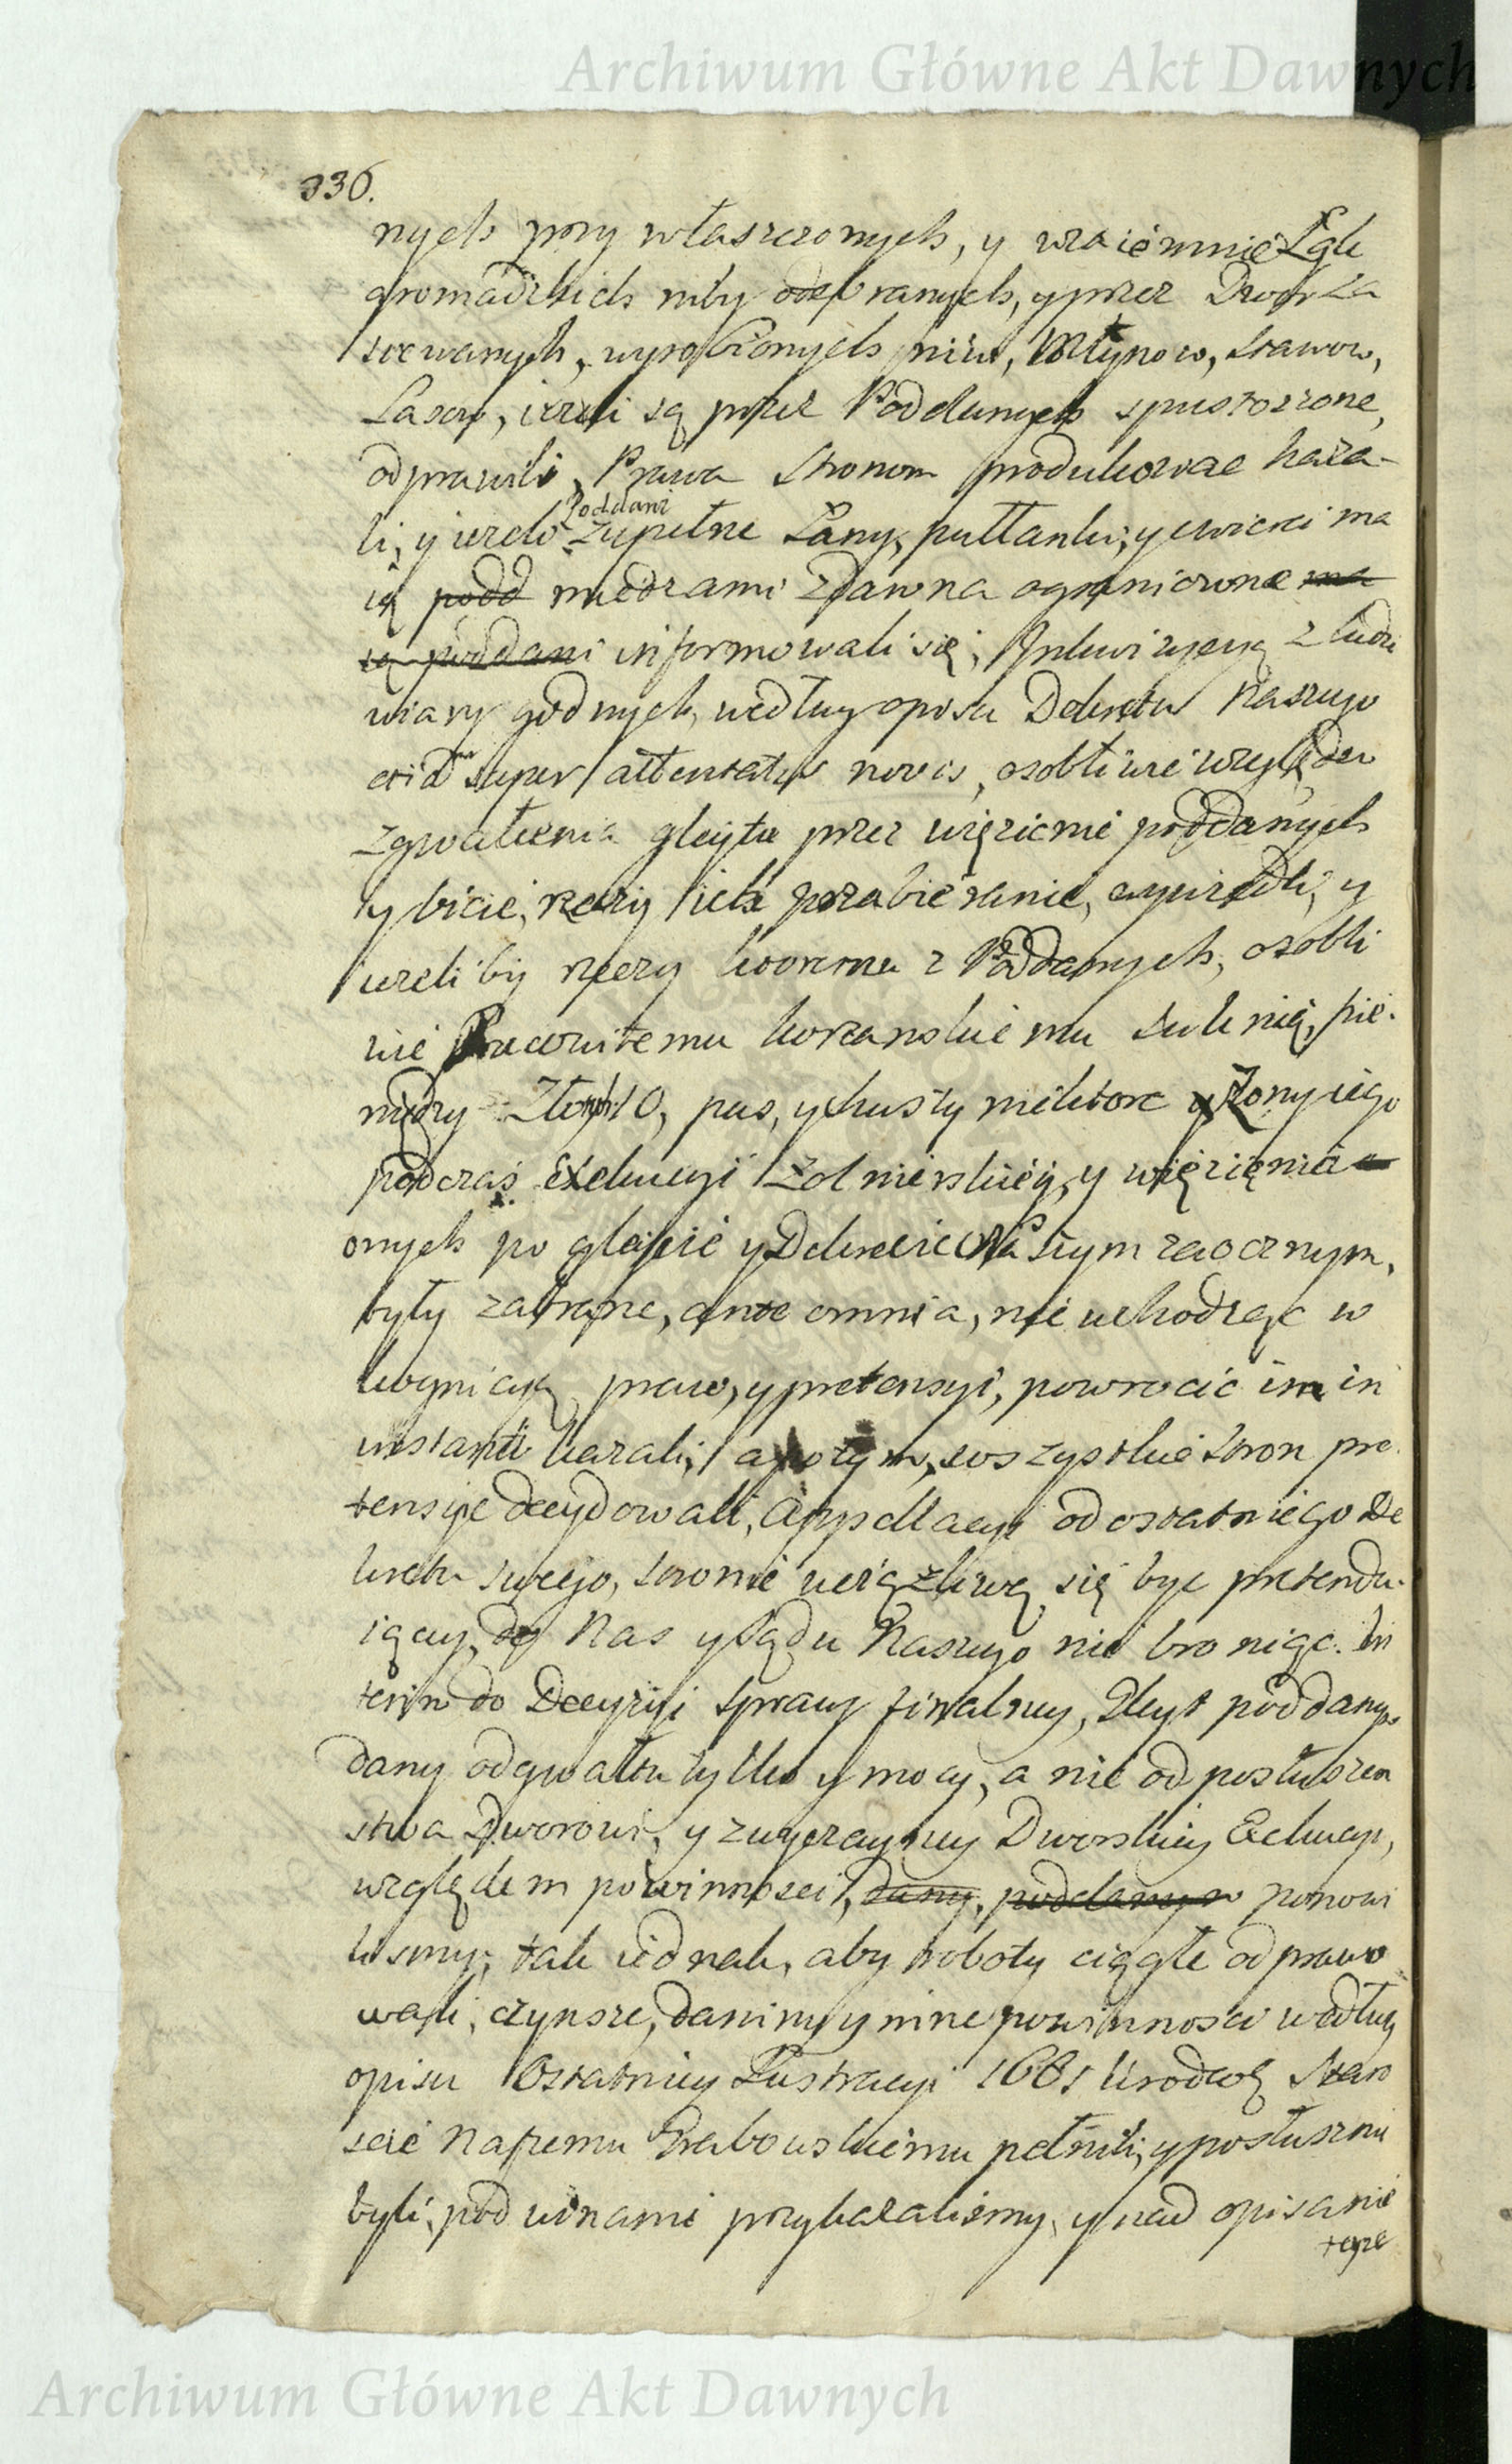 Archiwum Główne Akt Dawnych
336.
nych przywłaszczonych, y wzaiemnie Łąk
gromadzkich niby odebranych, y przez Dwor za
siewanych, wyrobionych niw, Młynow, Stawow,
Lasow, ieżeli są przez Poddanych spustoszone,
odprawili, Prawa Stronom produkować kaza-
li, y ieżeli Poddani zupełne Łany, pułłanki, y cwierci ma
ią podd miedzami zdawna ograniczone ma
ią poddani informowali się, Inkwizycyą z ludzi
wiary godnych, według opisu Dekretu Naszego
etiam super attentatis novis, osobliwie względem
zgwałcenia gleytu przez więzienie poddanych
y bicie, rzeczy ich zabieranie, wywiedli, y
ieżeliby rzeczy ktoremu z Poddanych, osobli
wie Pracowitemu Korzanskiemu suknię, pie-
niędzy Złotych 10, pas, y chusty niektore y Żony iego
podczas Exekucyi Zołnierskiey, y więzienia
onych po gleycie y Dekrecie Naszym zaocznym,
były zabrane, ante omnia, nie wchodząc w
kognicyą praw, y pretensyi, powrocić im in
instanti kazali, a potym, wszystkie stron pre
tensye decydowali, Appellacyi od ostatniego De
kretu swego, stronie uciążliwą się być pretendu-
iącey, do Nas y Sądu Naszego nie broniąc. In
terim do Decyzyi sprawy finalney, Gleyt poddanym
dany od gwałtu tylko y mocy, a nie od posłuszen
stwa Dworowi, y zwyczayney Dworskiey Exekucyi,
względem powinnosci, dany, poddanym ponowi
lismy; tak iednak, aby roboty ciągłe odprawo
wali, czynsze, daniny y inne powinnosci według
opisu Ostatniey Lustracyi 1661 Urodzonę Staro
scie Naszemu Grabowskiemu pełnili, y posłuszni
byli, pod winami przykazalismy, y nad opisanie
teyze
Archiwum Główne Akt Dawnych